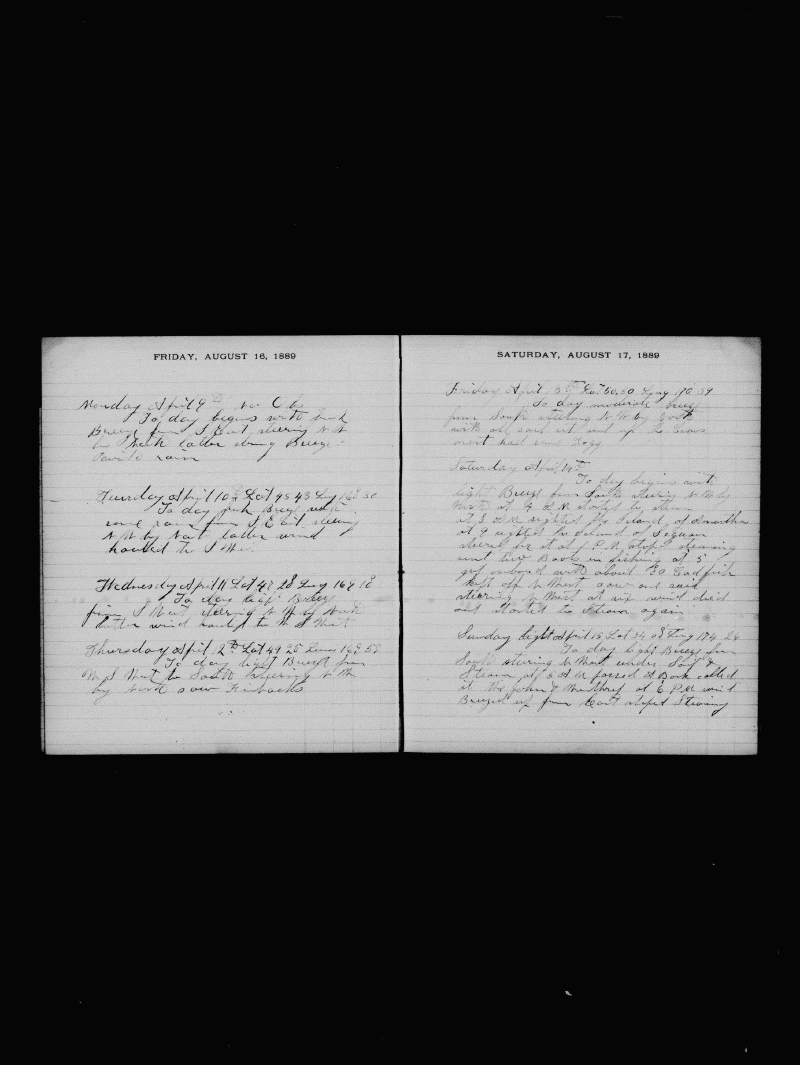 FRIDAY, AUGUST 16, 1889
Monday April 9th No Obs
To day begins with fresh
Breeze from S East steering N W
latter strong Breeze
with rain
Tuesday April 10th Lat 45 43 Lng 162 30
To day fresh Breeze with
some rain from S East steering
N W by West latter wind
hauled to S West
Wednesday April 11 Lat 47 28 Lng 167 18
To day light Breeze
from S West steering N W by West
latter wind hauled to W S West
Thursday April 12th Lat 49 25 Lng 169 58
To day light Breeze from
W S West to South steering N W
by West saw Finbacks
SATURDAY, AUGUST 17, 1889
Friday April 13th Lat 50.50 Lng 170 39
To day moderate breeze
from South steering N W by West
with all sail set and up the Crows
nest had some Fogg
Saturday April 14th
To day begins with
light Breeze from South steering N W by
West at 4 A M started to steam
at 5 A M sighted the Island of
at 9 sighted the Island of Seguam
at 1 P.M. stopt steaming
and Boats in fishing at 5
got onboard with about 50 Codfish
kept off N West saw one sail
steering N West at six wind died
out started to Steam again
Sunday light April 15 Lat 54 08 Lng 174 24
To day light Breeze from
South steering N West under Sail &
Steam at 5 A M passed a Bark called
it the John & Winthrop at 6 P.M wind
Breezed up from East stopt Steaming